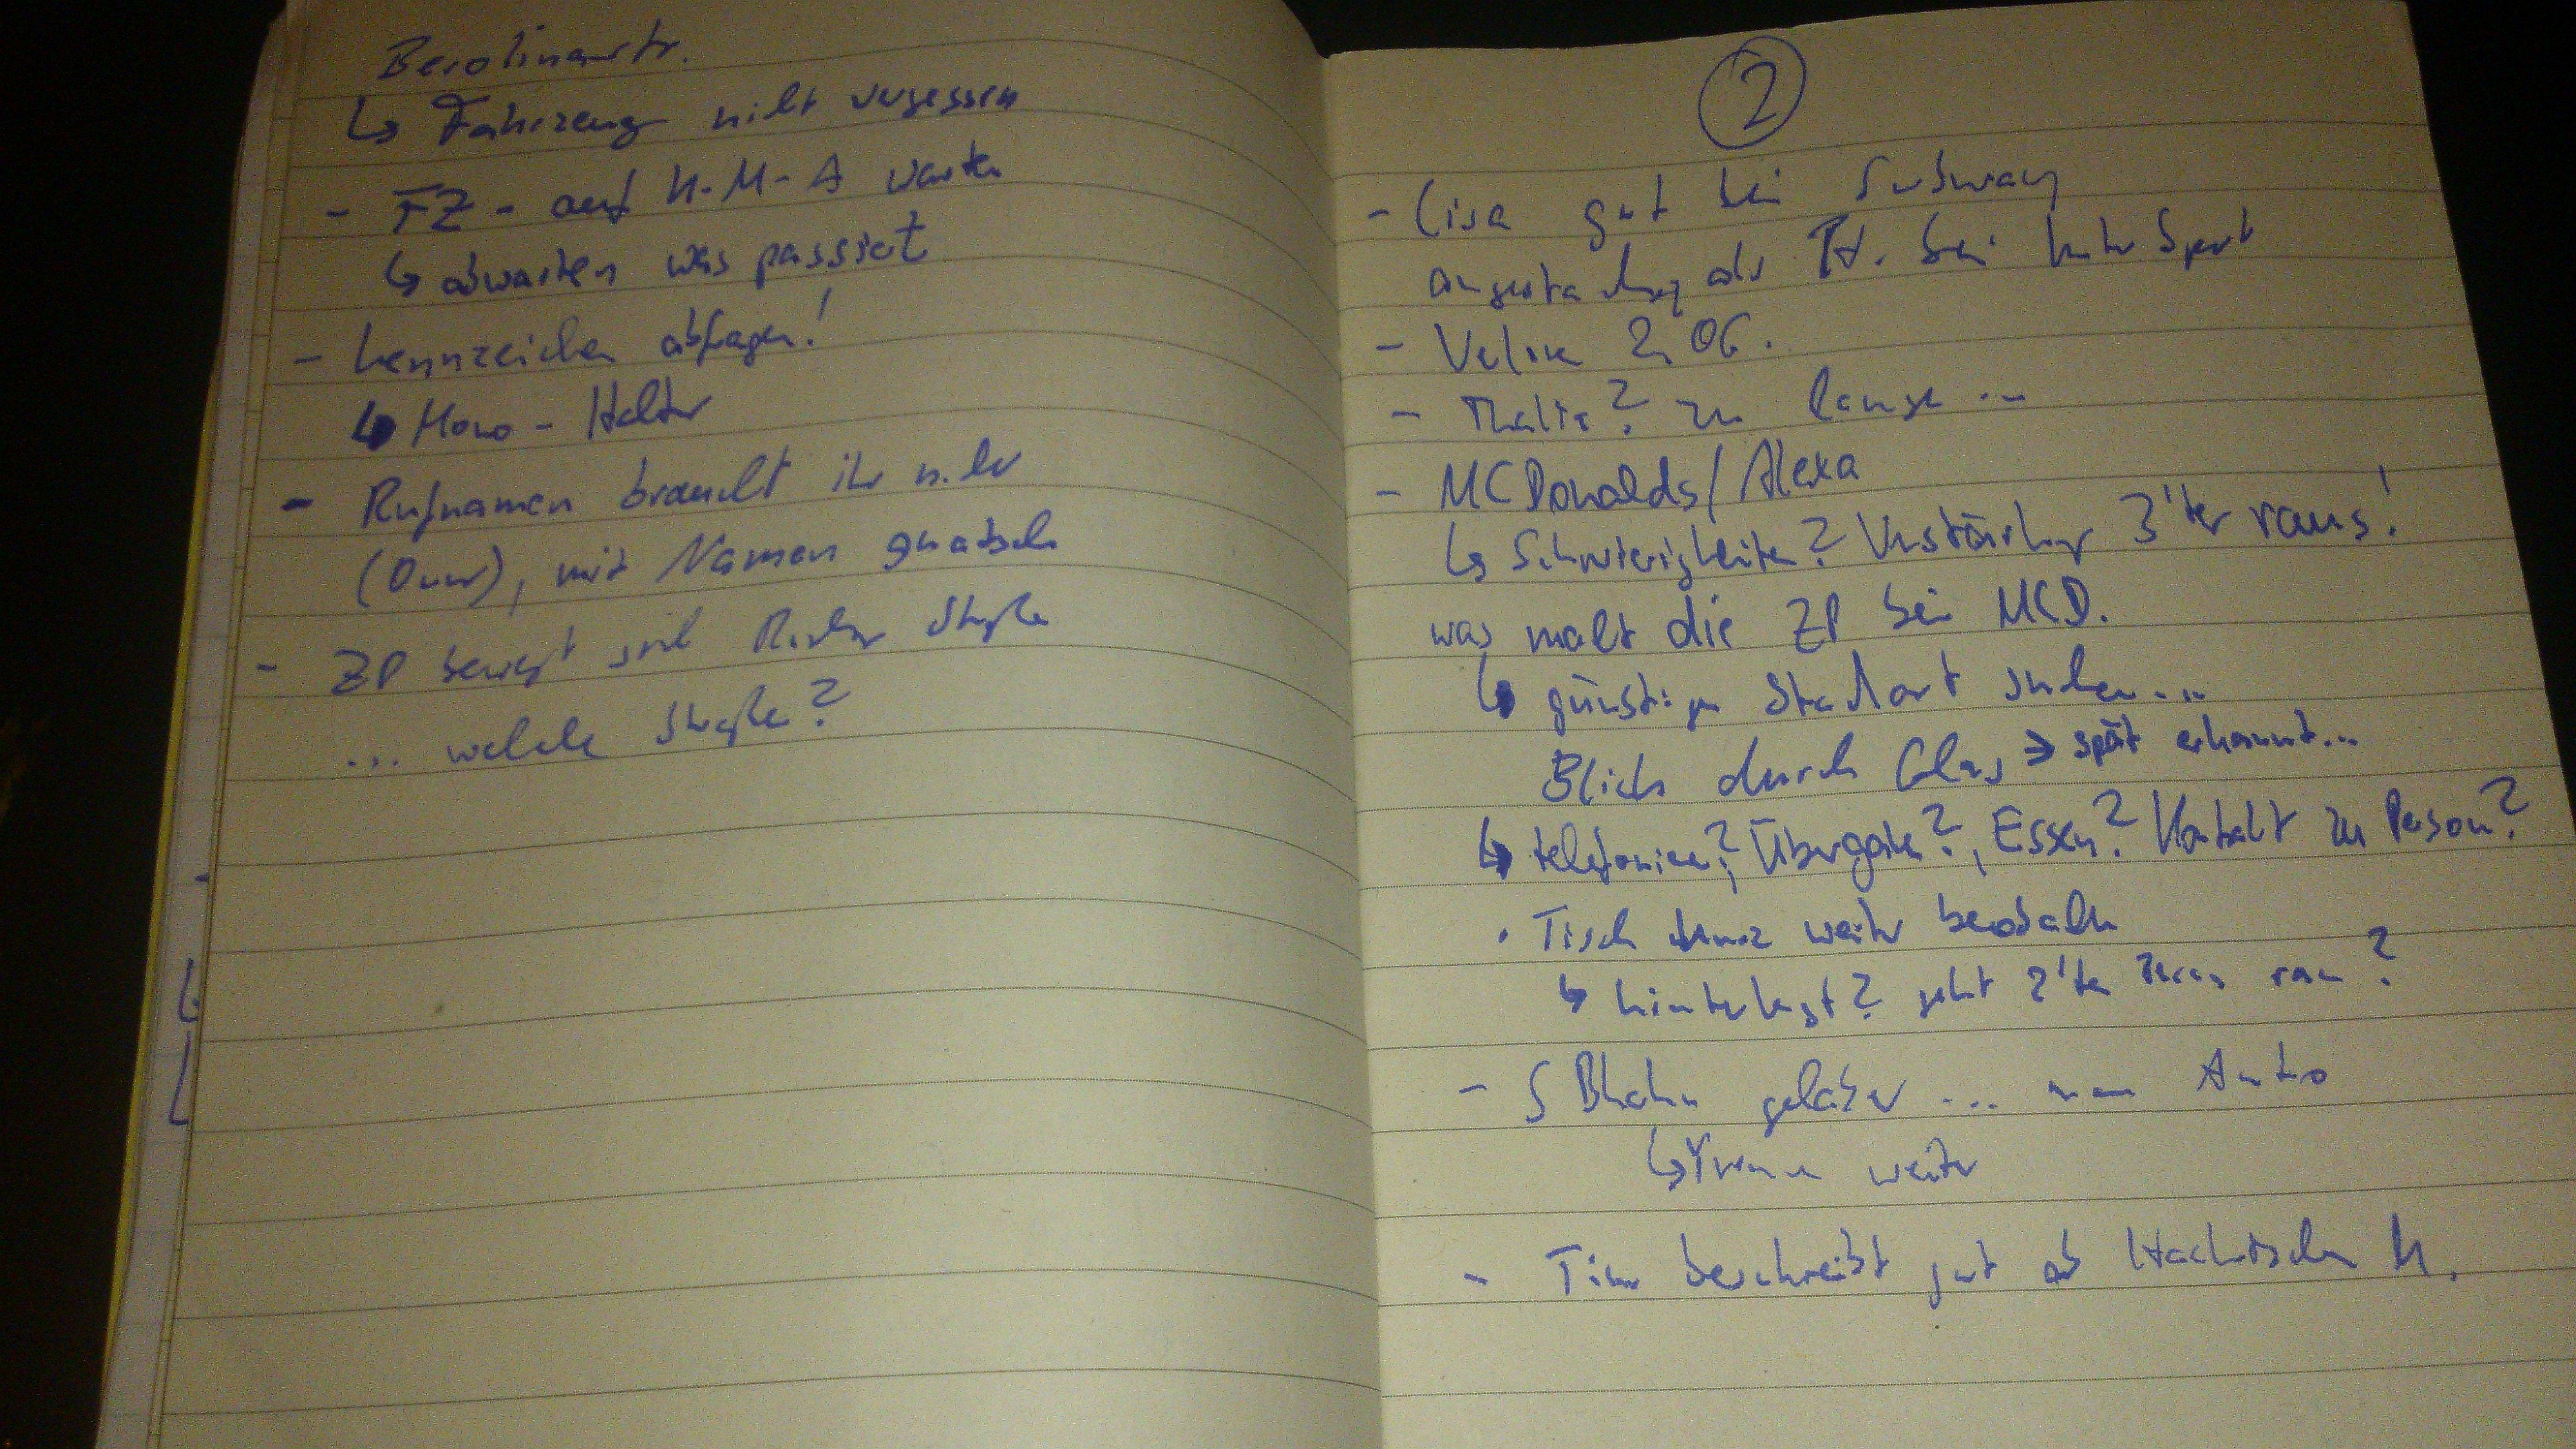 Berolinastr.
↳ Fahrzeug nicht vergessen
- FZ - auf K-M-A warten
↳ abwarten was passiert
- Kennzeichen abfragen!
↳ Mono - Halter
- Rufnamen braucht ihr
, mit Namen quatsch
- ZP bewegt sich Richtg Straße
... welche Straße?
②
- Lisa gut bei Subway
als bei InterSport
- 2. OG.
- Thalia? zu lange ...
- MCDonalds/Alexa
↳ Schwierigkeiten? Verstärkung 3'ter raus!
was macht die ZP bei MCD.
↳ günstigen Standort suchen...
Blick durch Glas → spät erkannt...
↳ telefonieren?, Übergabe?, Essen? Kontakt zu Person?
· Tisch weiter beobachten
↳ hinterlegt? geht 2'te Person ran?
- S Bhahn ... Auto
↳ weiter
- Tim beschreibt gut ab Hackischen M.